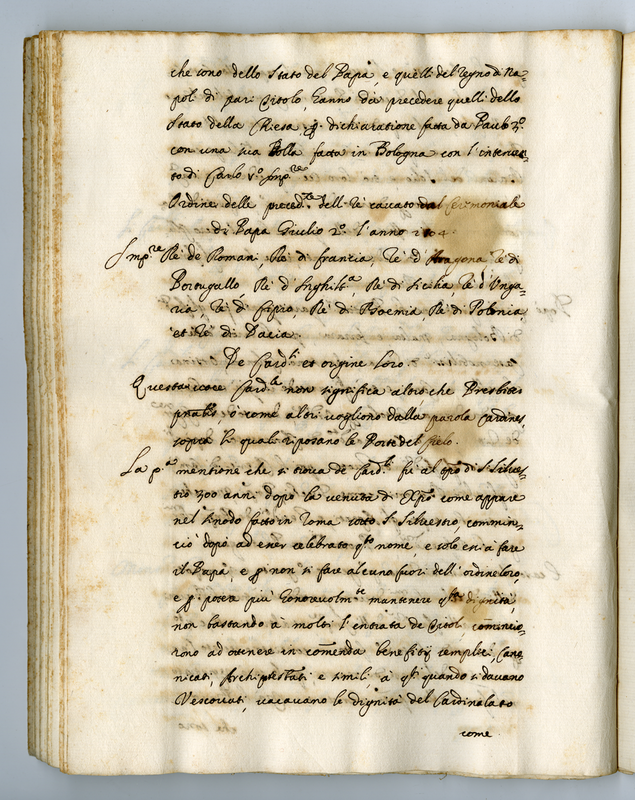 che sono dello Stato del Papa, e quelli del Regno di Na=
poli di pari Titolo, hanno da precedere quelli dello
Stato della Chiesa, p. dichiaratione fatta da Paulo 3.º
con una sua Bolla fatta in Bologna con l'interven=
to di Carlo V.º Imp.re
Ordine delle preced.ze delli Rè cavato dal Ceremoniale
di Papa Giulio 2.º l'anno
Imp.re Rè de Romani, Rè di francia, Rè d'Aragona Rè di
Portugallo Rè d'Inghilt.a, Rè di Sicilia, Rè d'Unga=
ria Rè di Cipro, Rè di Boemia, Rè di Polonia,
et Rè di Dacia.
De Card.li et origine loro.
Questa voce Card.le non significa altro che Presbiter
o come altri vogliono dalla parola Cardines,
sopra li quali riposano le Porte del Cielo.
La p.a mentione che si trova de Card.li fù al tpo di S. Silves=
tro 300 anni dopo la venuta di Xpo come appare
nel sinodo fatto in Roma sotto S. Silvestro, commin=
ciò dopo ad esser celebrato qto nome, e solo essi à fare
il Papa, e p non si fare alcuno fuori dell'ordine loro
e p poter più honorevolm.te mantenere qsta dignità,
non bastando à molti l'entrata de Titoli comincio=
rono ad ottenere in comenda benefitij semplici, Cano=
nicati, Archipretati e simili à qli quando si davano
Vescovati, vacavano le dignità del Cardinalato
come